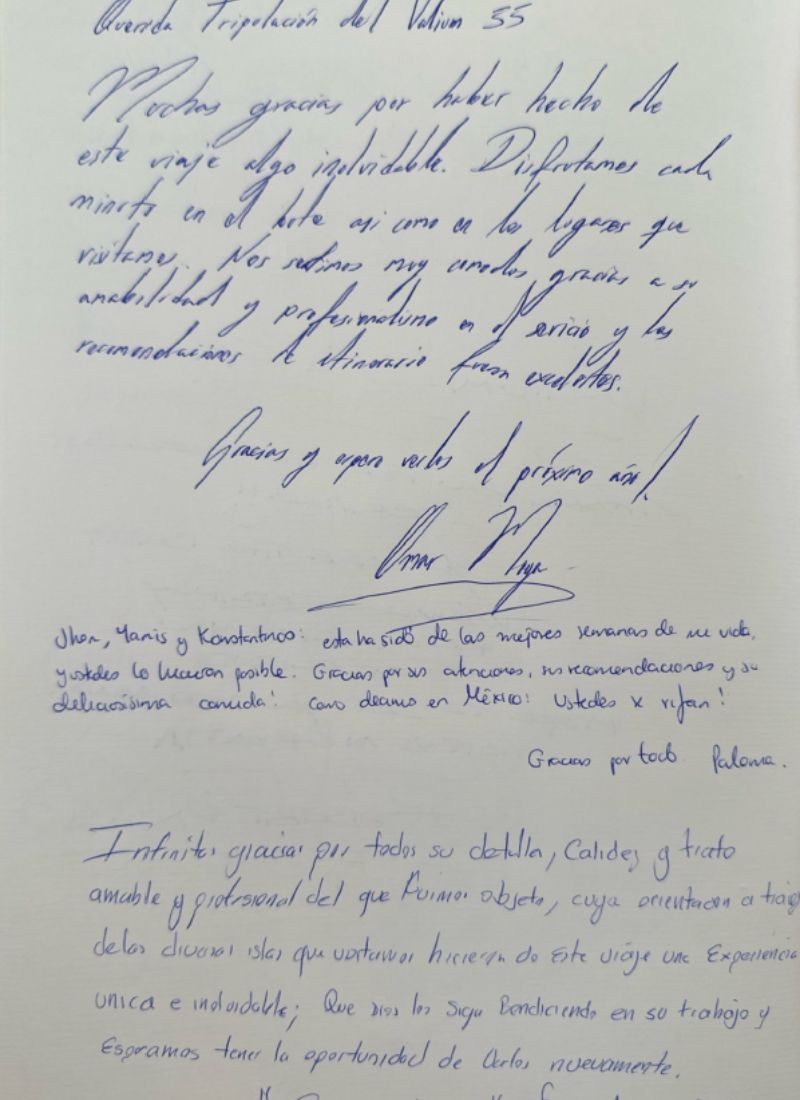 Querida Tripolación del Valium 55
Muchas gracias por haber hecho de
este viaje algo inolvidable. Disfrutamos cada
minuto en el bote asi como en los lugares que
visitamos. Nos sentimos muy comodos gracias a su
amabilidad y profesionalismo en el servicio y las
recomendaciones de itinerario fueron excelentes.
Gracias y espero verlos el próximo año!
Omar Moya
Jhon, Yanis y Konstantinos: esta ha sido de las mejores semanas de mi vida,
y ustedes lo hicieron posible. Gracias por sus atenciones, sus recomendaciones y su
deliciosísima comida! Como decimos en México: Ustedes se rifan!
Gracias por todo. Paloma.
Infinitas gracias por todos su detalla, Calidez y trato
amable y profesional del que fuimos objeto, cuya orientacion a
delas diversas islas que visitamos hicieron de Este viaje una Experiencia
unica e inolvidable; Que Dios los Siga Bendiciendo en su trabajo y
Esperamos tener la oportunidad de Verlos nuevamente.